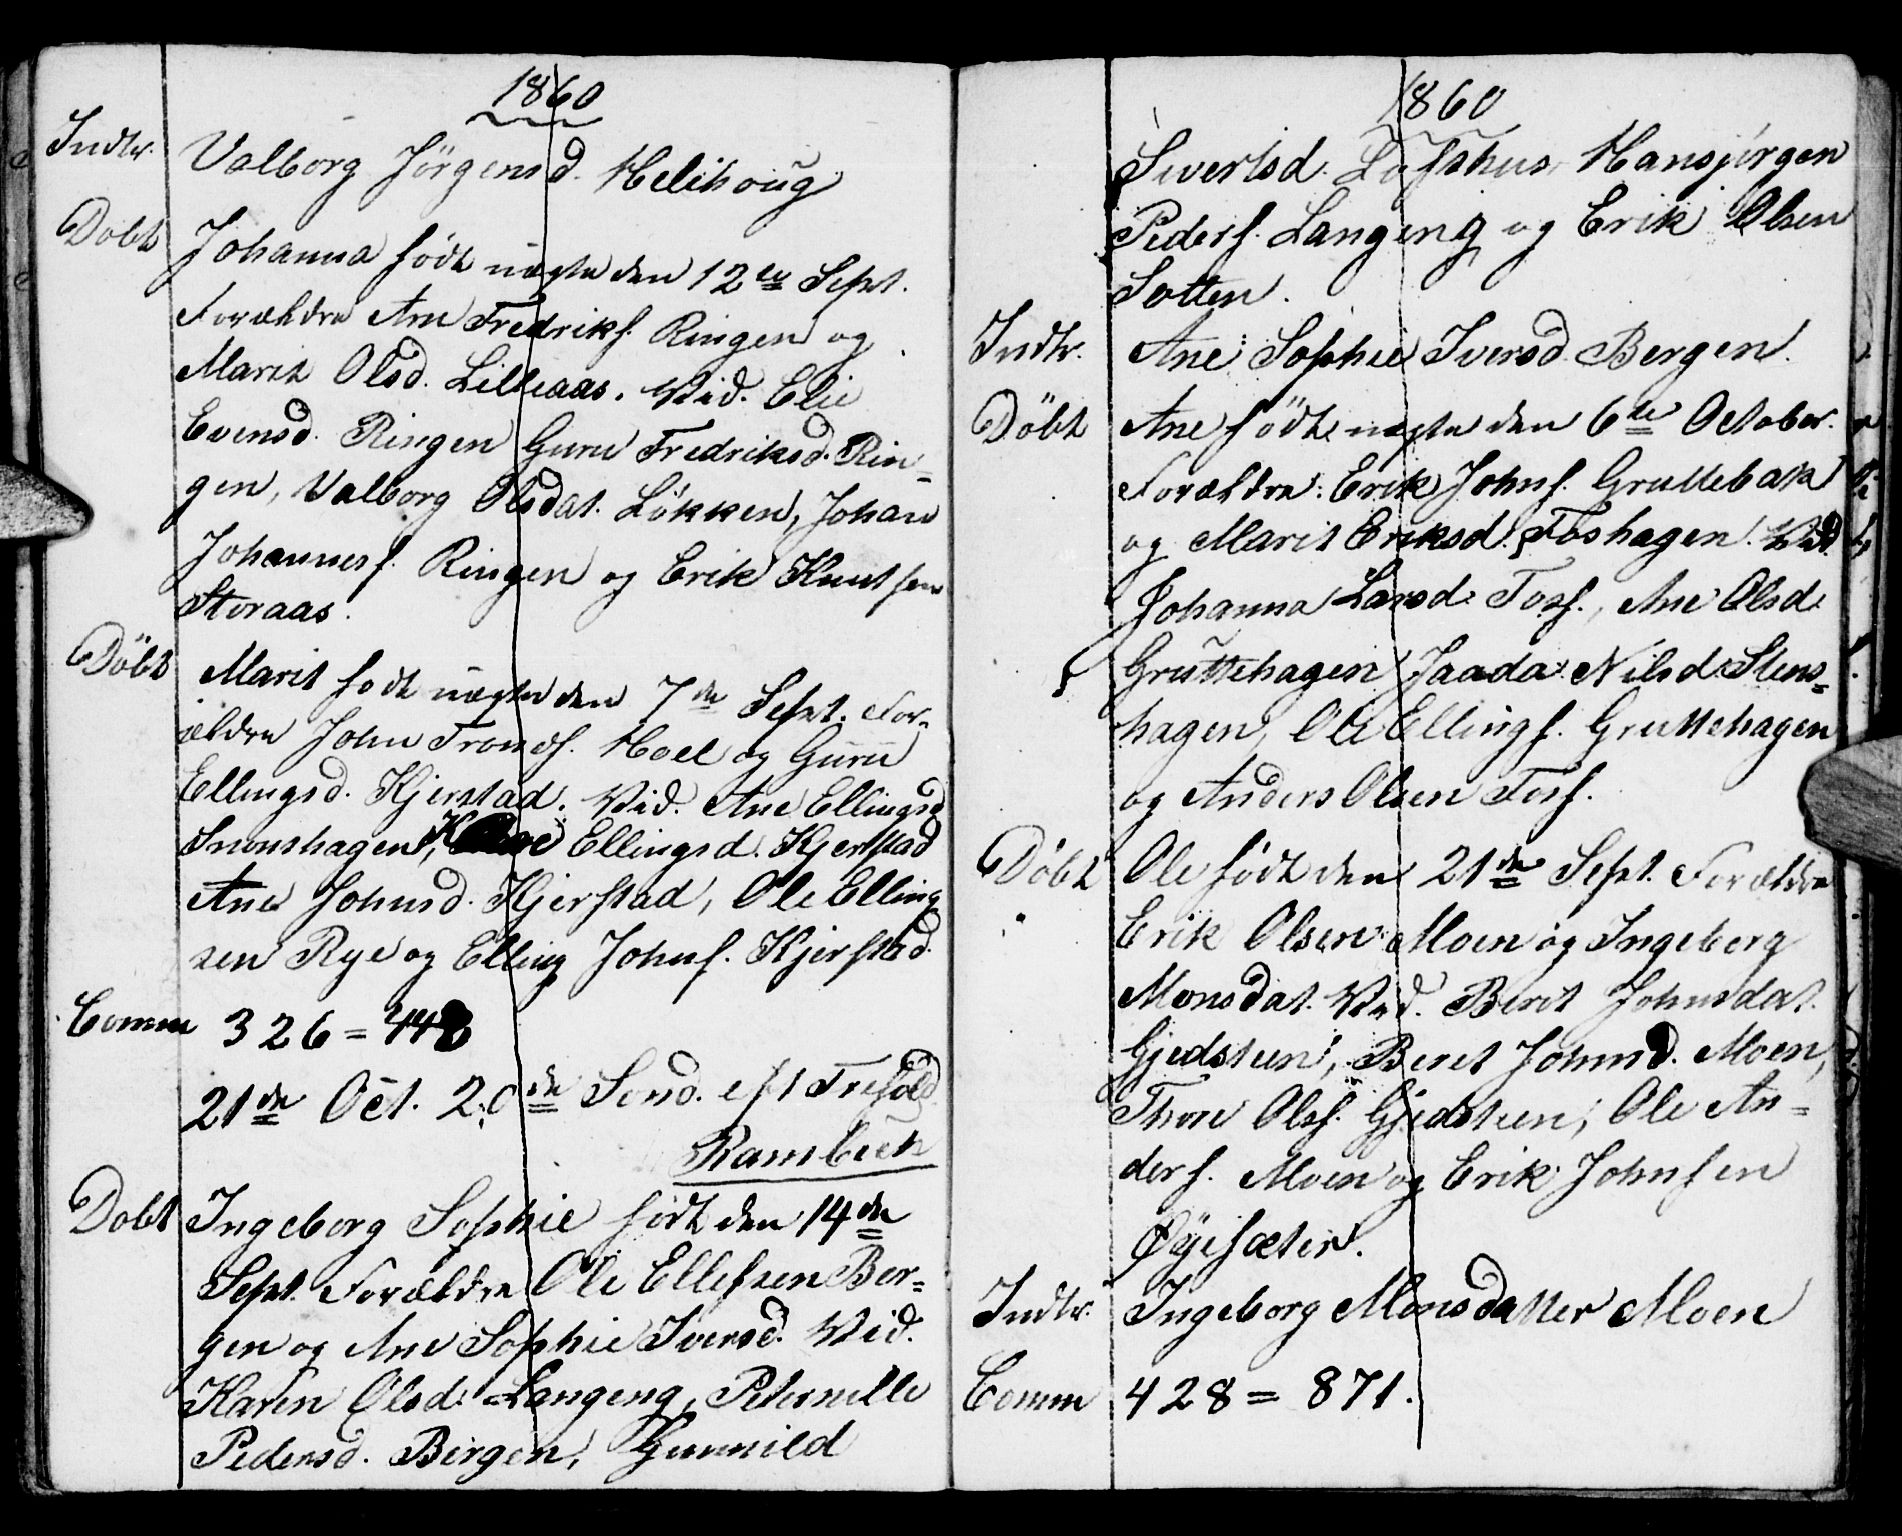 1860
Indtr. Valborg Jörgensd. Melihoug
Döbt Johanna födt uægte den 12te Sept.
Forældre Arn Fredriks. Ringen og
Marit Olsd. Lilleaas. Vid. Elie
Evensd. Ringen Guru Fredriksd. Rin=
gen, Valborg Olsdat. Lökken, Johan
Johannes. Ringen og Erik Knutsen
Storaas.
Döbt Marit födt uægte den 7de Sept. For=
ældre John Tronds. Moel og Guru
Ellingsd. Kjerstad. Vid. Ane Ellingsd
Ellingsd. Kjerstad
Ane Johnsd. Kjerstad, Ole Elling
sen Rye og Elling Johns. Kjerstad.
Comm 326 = 443
21de Oct. 20de Sönd. eft Trefold.
Rambech
Döbt Ingeborg Sophie födt den 14de
Sept. Forældre Ole Ellefsen Ber=
gen og Ane Sophie Iversd. Vid.
Karen Olsd. Langeng, Peternelle
Pedersd. Bergen, Gunnild
1860
Sivertsd. Loftshus, Hansjörgen
Peders. Langeng og Erik Olsen
Sotten.
Indtr. Ane Sophie Iversd. Bergen.
Döbt Ane födt uægte den 6te October.
Forældre: Erik Johns. Gruttebak
og Marit Eriksd. Foshagen. Vid.
Johanna Larsd. Foss., Ane Olsd.
Gruttehagen Jaada Nilsd. Stens=
hagen, Ole Ellings. Gruttehagen
og Anders Olsen Foss.
Döbt Ole födt den 21de Sept. Forældre
Erik Olsen Moen og Ingeborg
Monsdat. Vid. Berit Johnsdat.
Gjedsteen, Beret Johnsd. Moen,
Thore Ols. Gjedsteen, Ole An=
ders. Moen og Erik Johnsen
Öyesæter.
Indtr. Ingeborg Monsdatter Moen
Comm 428 = 871.